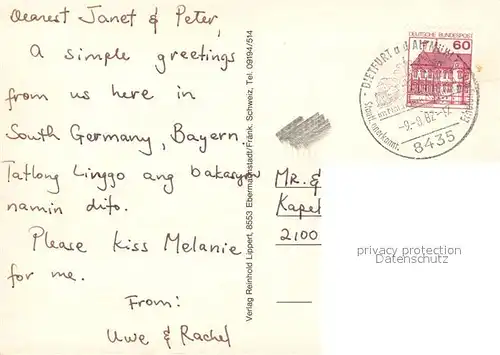 Dearest Janet & Peter,
A simple greetings
from us here in
South Germany, Bayern.
Tatlong Linggo ang bakasyon
namin dito.
Please kiss Melanie
for me.
From:
Uwe & Rachel
Verlag Reinhold Lippert, 8553 Ebermannstadt/Fränk. Schweiz, Tel. 09194/514
DEUTSCHE BUNDESPOST
60
DIETFURT a.d. ALTMÜHL
Staatl. anerkannt.
-9.-9.82-
8435
Mr. &
Kapel
2100
privacy protection
Datenschutz